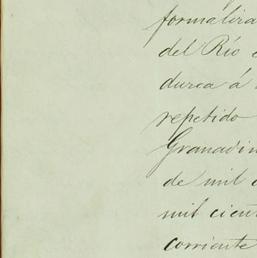 formalizar
del Río
durca á
repetido
Granadin
de mil
mil cien
corriente